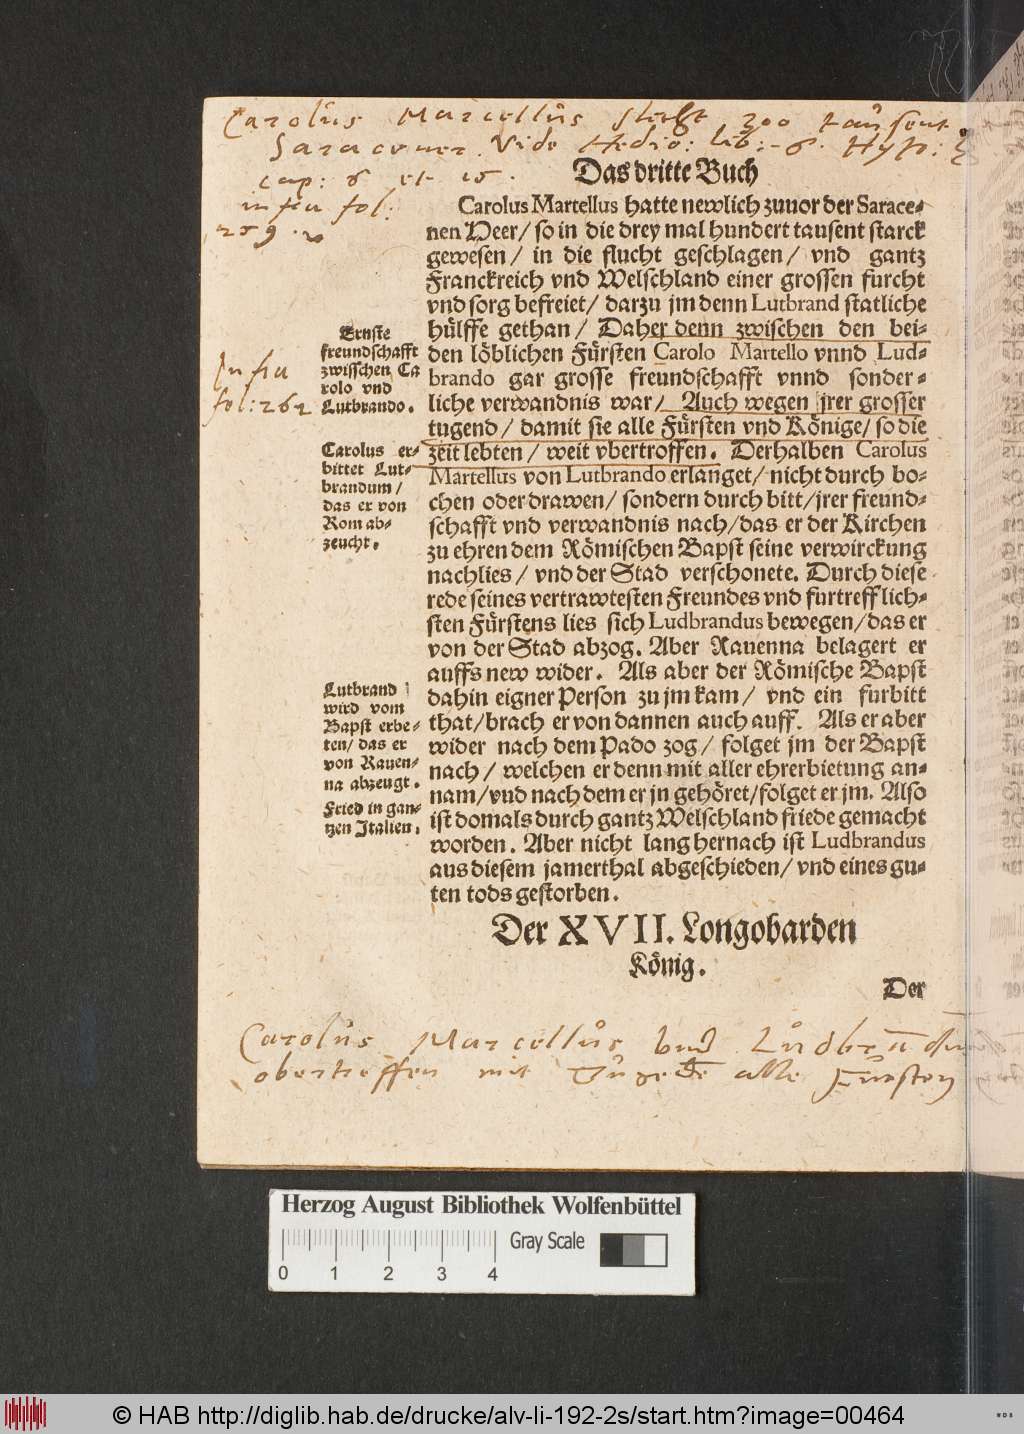 Carolus Marcellus slecht 300 tausent
Saracener. Vide Hedio: lib:
cap: 8 et 15.
infra fol:
259.
Das dritte Buch
Carolus Martellus hatte newlich zuuor der Sarace-
nen Heer/ so in die drey mal hundert tausent starck
gewesen/ in die flucht geschlagen/ vnd gantz
Franckreich vnd Welschland einer grossen furcht
vnd sorg befreiet/ darzu jm denn Lutbrand statliche
hülffe gethan/ Daher denn zwischen den bei-
den löblichen Fürsten Carolo Martello vnnd Lud-
brando gar grosse freundschafft vnnd sonder-
liche verwandnis war/ Auch wegen jrer grosser
tugend/ damit sie alle Fürsten vnd Könige/ so die
zeit lebten/ weit vbertroffen. Derhalben Carolus
Martellus von Lutbrando erlanget/ nicht durch bo-
chen oder drawen/ sondern durch bitt/ jrer freund-
schafft vnd verwandnis nach/ das er der Kirchen
zu ehren dem Römischen Bapst seine verwirckung
nachlies/ vnd der Stad verschonete. Durch diese
rede seines vertrawtesten Freundes vnd furtrefflich-
sten Fürstens lies sich Ludbrandus bewegen/ das er
von der Stad abzog. Aber Rauenna belagert er
auffs new wider. Als aber der Römische Bapst
dahin eigner Person zu jm kam/ vnd ein furbitt
that/ brach er von dannen auch auff. Als er aber
wider nach dem Pado zog/ folget jm der Bapst
nach/ welchen er denn mit aller ehrerbietung an-
nam/ vnd nach dem er jn gehöret/ folget er jm. Also
ist domals durch gantz Welschland friede gemacht
worden. Aber nicht lang hernach ist Ludbrandus
aus diesem jamerthal abgeschieden/ vnd eines gu-
ten tods gestorben.
Ernste
freundschafft
zwisschen Ca
rolo vnd
Lutbrando.
Infra
fol: 262
Carolus er-
bittet Lut-
brandum/
das er von
Rom ab-
zeucht.
Lutbrand
wird vom
Bapst erbe-
ten/ das er
von Rauen-
na abzeugt.
Fried in gan-
tzen Italien.
Der XVII. Longobarden
König.
Der
Carolus Marcellus vnd
obertreffen mit Tugende alle Fürsten
Herzog August Bibliothek Wolfenbüttel
Gray Scale
0 1 2 3 4
© HAB http://diglib.hab.de/drucke/alv-li-192-2s/start.htm?image=00464